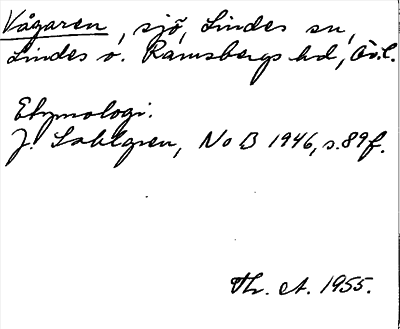 Vågaren, sjö, Lindes sn,
Lindes o. Ramsbergs hd, Öv.l.
Etymologi:
J. Sahlgren, NoB 1946, s. 89 f.
Th. A. 1955.